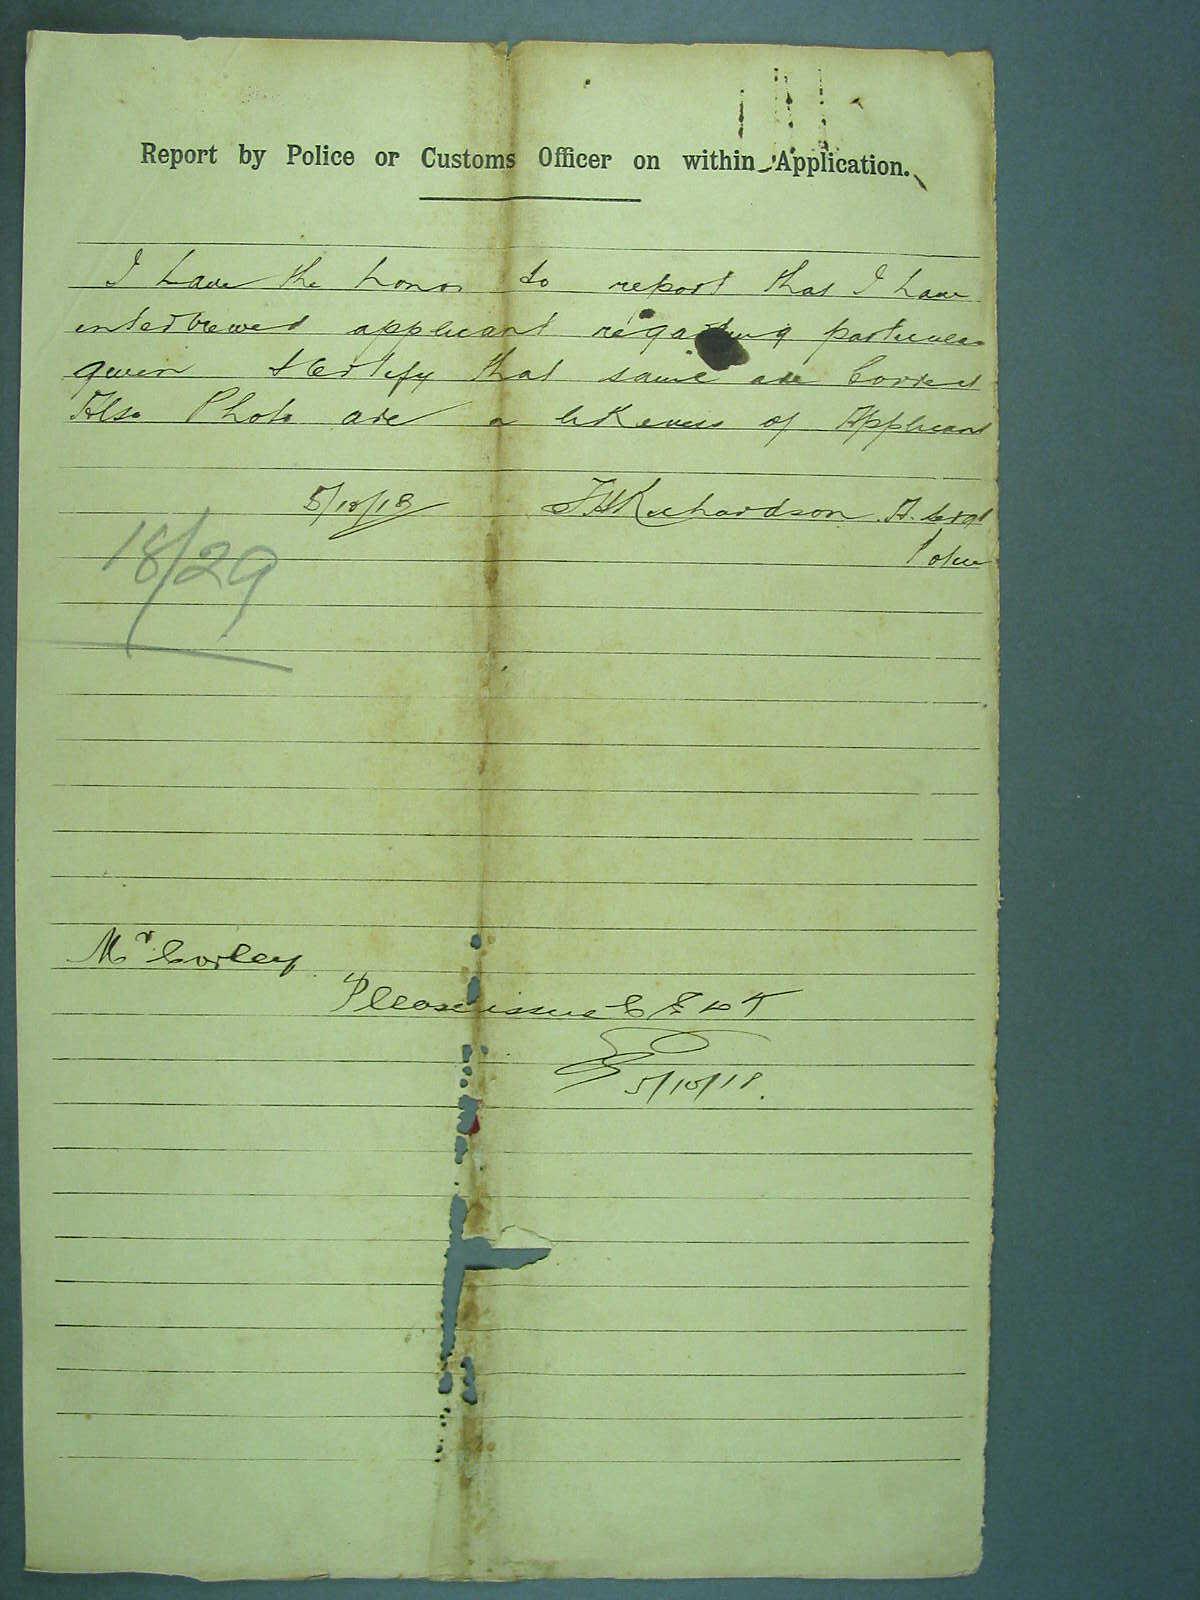 Report by Police or Customs Officer on within Application.
I have the honor to report that I have
interviewed applicant regarding particulars
given & Certify that same are Correct
Also Photo are a likeness of Applicant
5/10/18 Richardson A. Sergt
Police
18/29
Mr Corley
Please issue C E D T
5/10/18.